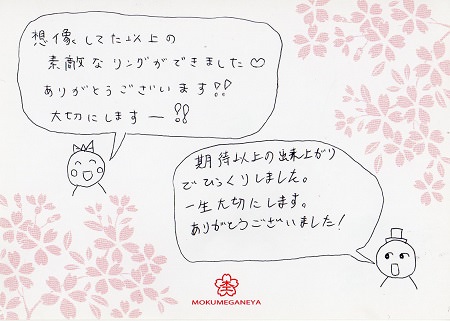 想像してた以上の
素敵なリングができました♡
ありがとうございます!!
大切にしますー!!
期待以上の出来上がり
でびっくりしました。
一生大切にします。
ありがとうございました!
MOKUMEGANEYA